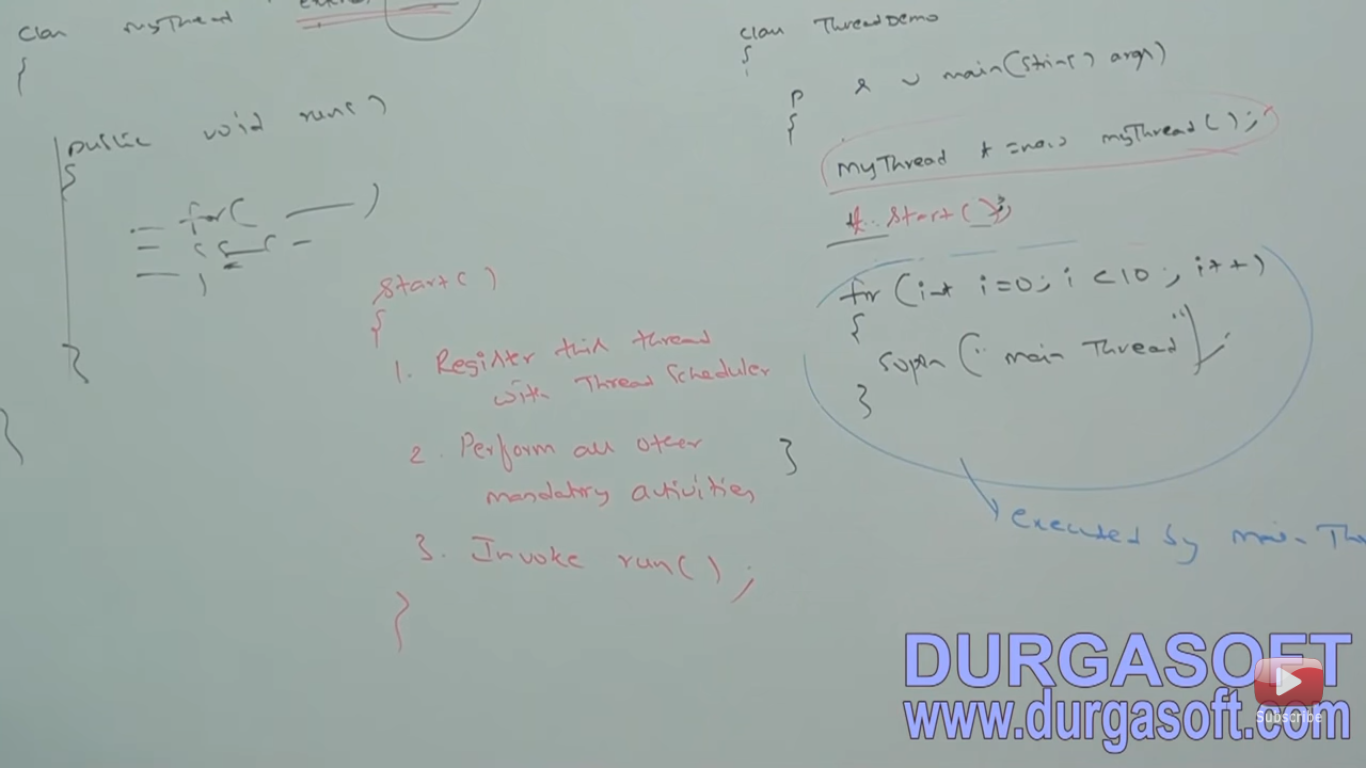 class myThread
{
public void run()
{
for( )
}
}
start()
{
1. Register this thread
with Thread Scheduler
2. Perform all other
mandatory activities
3. Invoke run();
}
class ThreadDemo
{
p s v main(String[] args)
{
MyThread t = new myThread();
t.start();
for (int i=0; i<10; i++)
{
sopln("main Thread");
}
}
executed by main
DURGASOFT
www.durgasoft.com
Subscribe